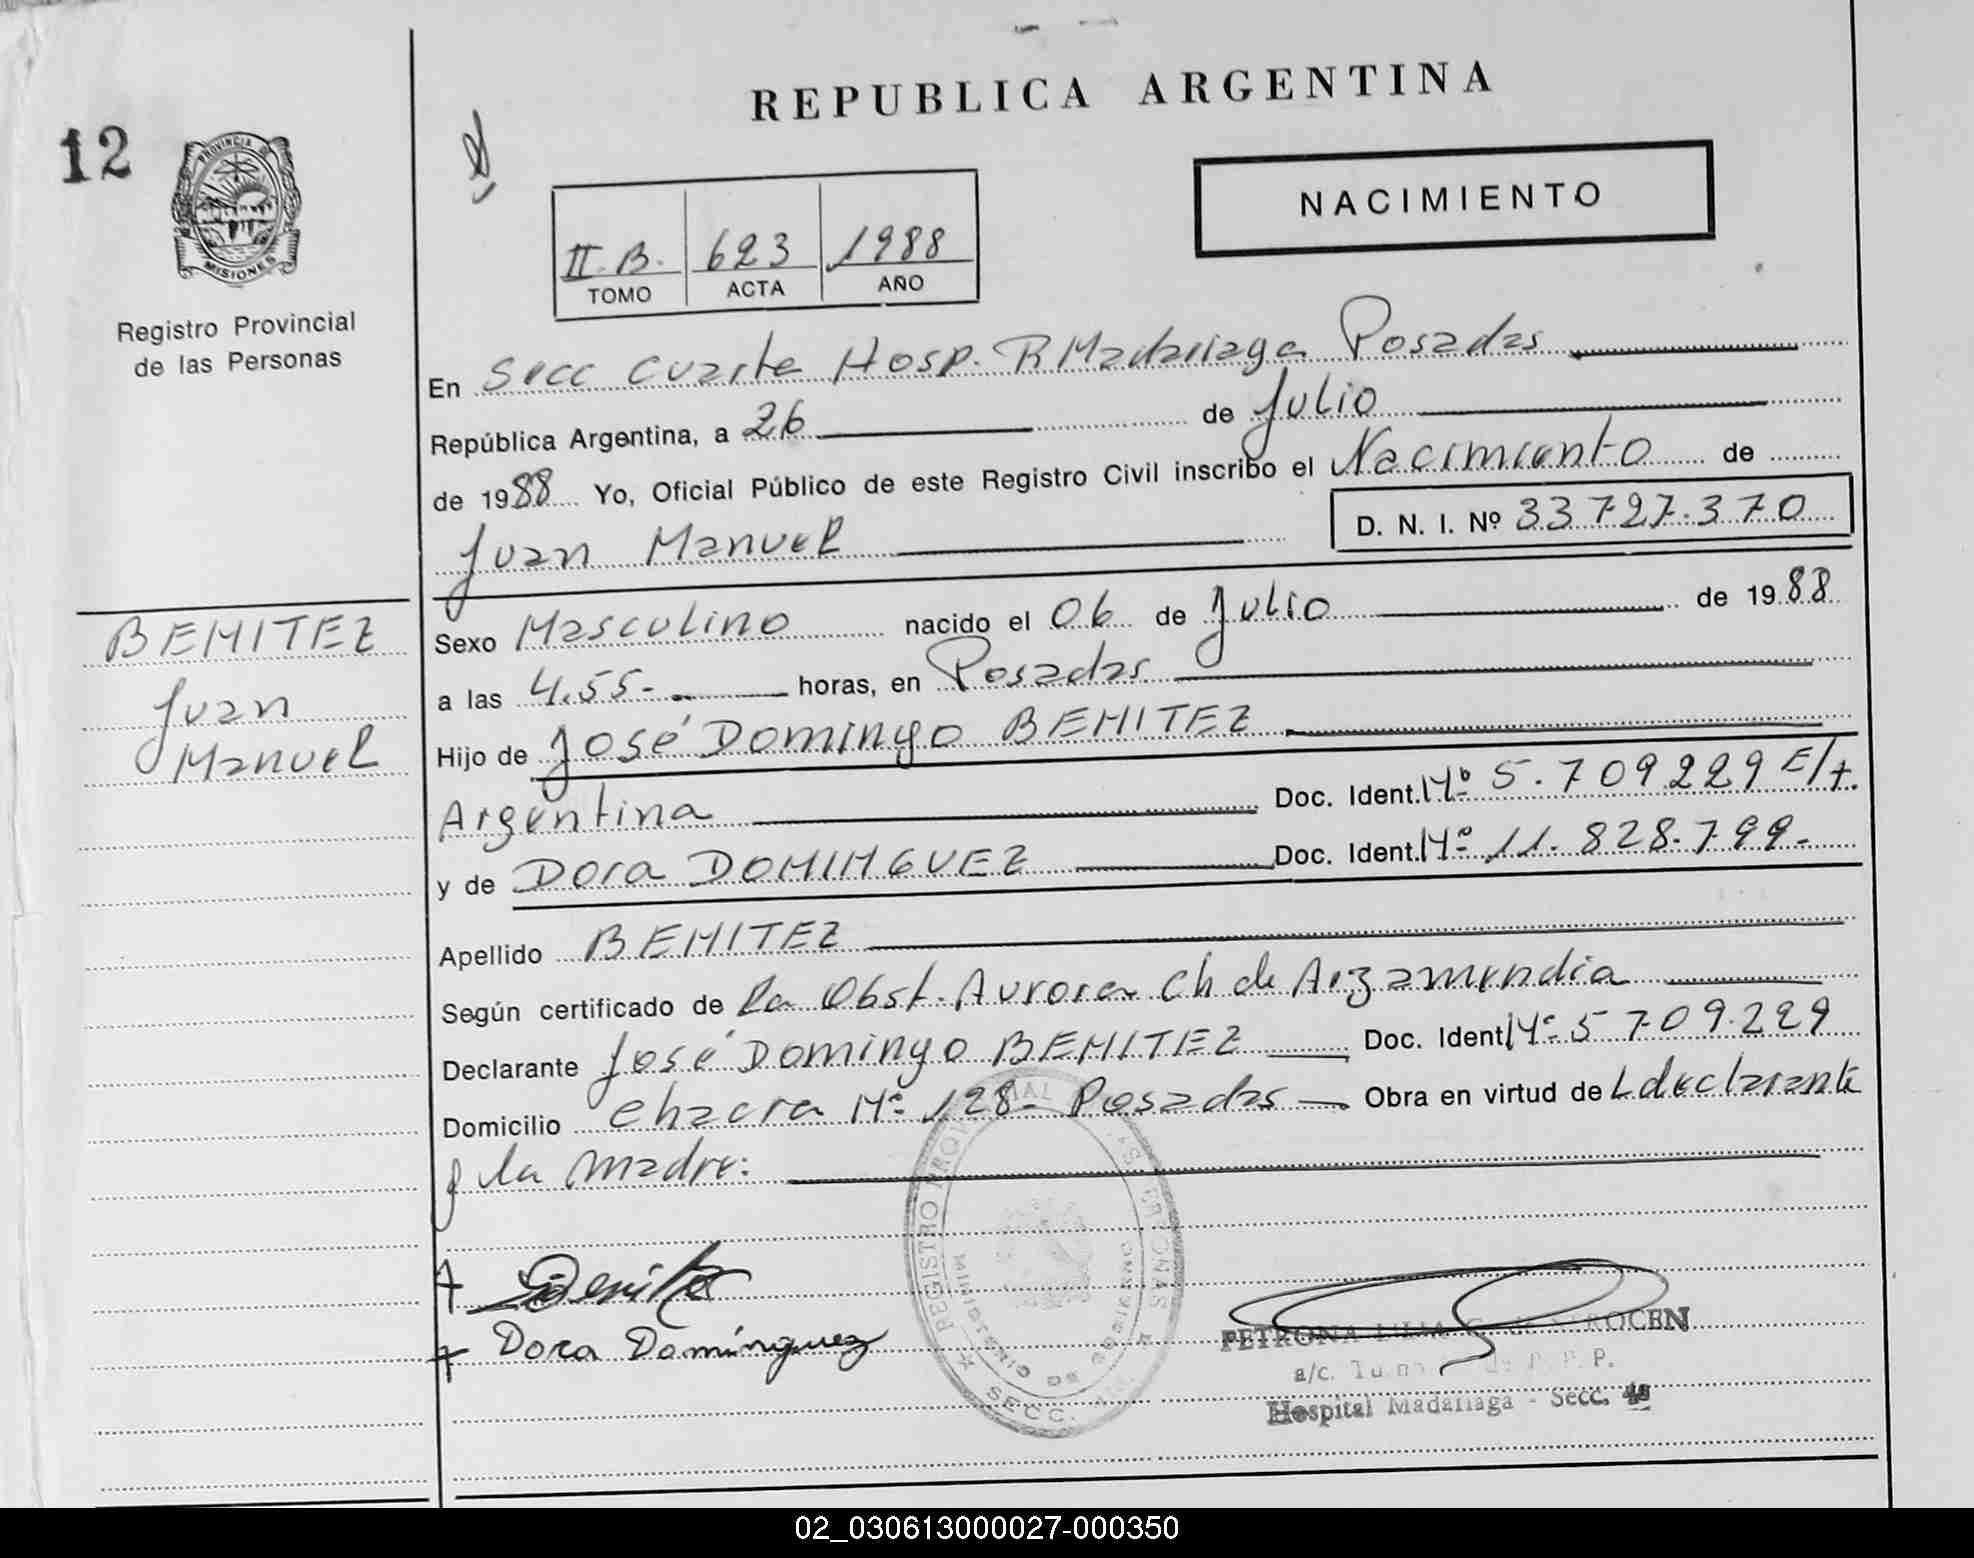 REPUBLICA ARGENTINA
12
PROVINCIA DE
MISIONES
NACIMIENTO
II.B. 623 1988
TOMO ACTA AÑO
Registro Provincial
de las Personas
En Secc Cuarta Hosp. R Madariaga Posadas
República Argentina, a 26 de Julio
de 1988 Yo, Oficial Público de este Registro Civil inscribo el Nacimiento de
Juan Manuel D. N. I. Nº 33.727.370
BENITEZ
Juan
Manuel
Sexo Masculino nacido el 06 de Julio de 1988
a las 4.55- horas, en Posadas
Hijo de José Domingo BENITEZ
Argentina Doc. Ident. Nº 5.709.229 E/t.
y de Dora DOMINGUEZ Doc. Ident. Nº 11.828.799.-
Apellido BENITEZ
Según certificado de la Obst. Aurora Ch de Arzamendia
Declarante José Domingo BENITEZ Doc. Ident. Nº 5.709.229
Domicilio Chacra Nº 128- Posadas Obra en virtud de L declarante
y la madre:
Dora Domínguez
REGISTRO PROVINCIAL PERSONAS
MINISTERIO DE GOBIERNO
SECC.
PETRONA
a/c.
Hospital Madariaga - Secc. 4ª
02_030613000027-000350